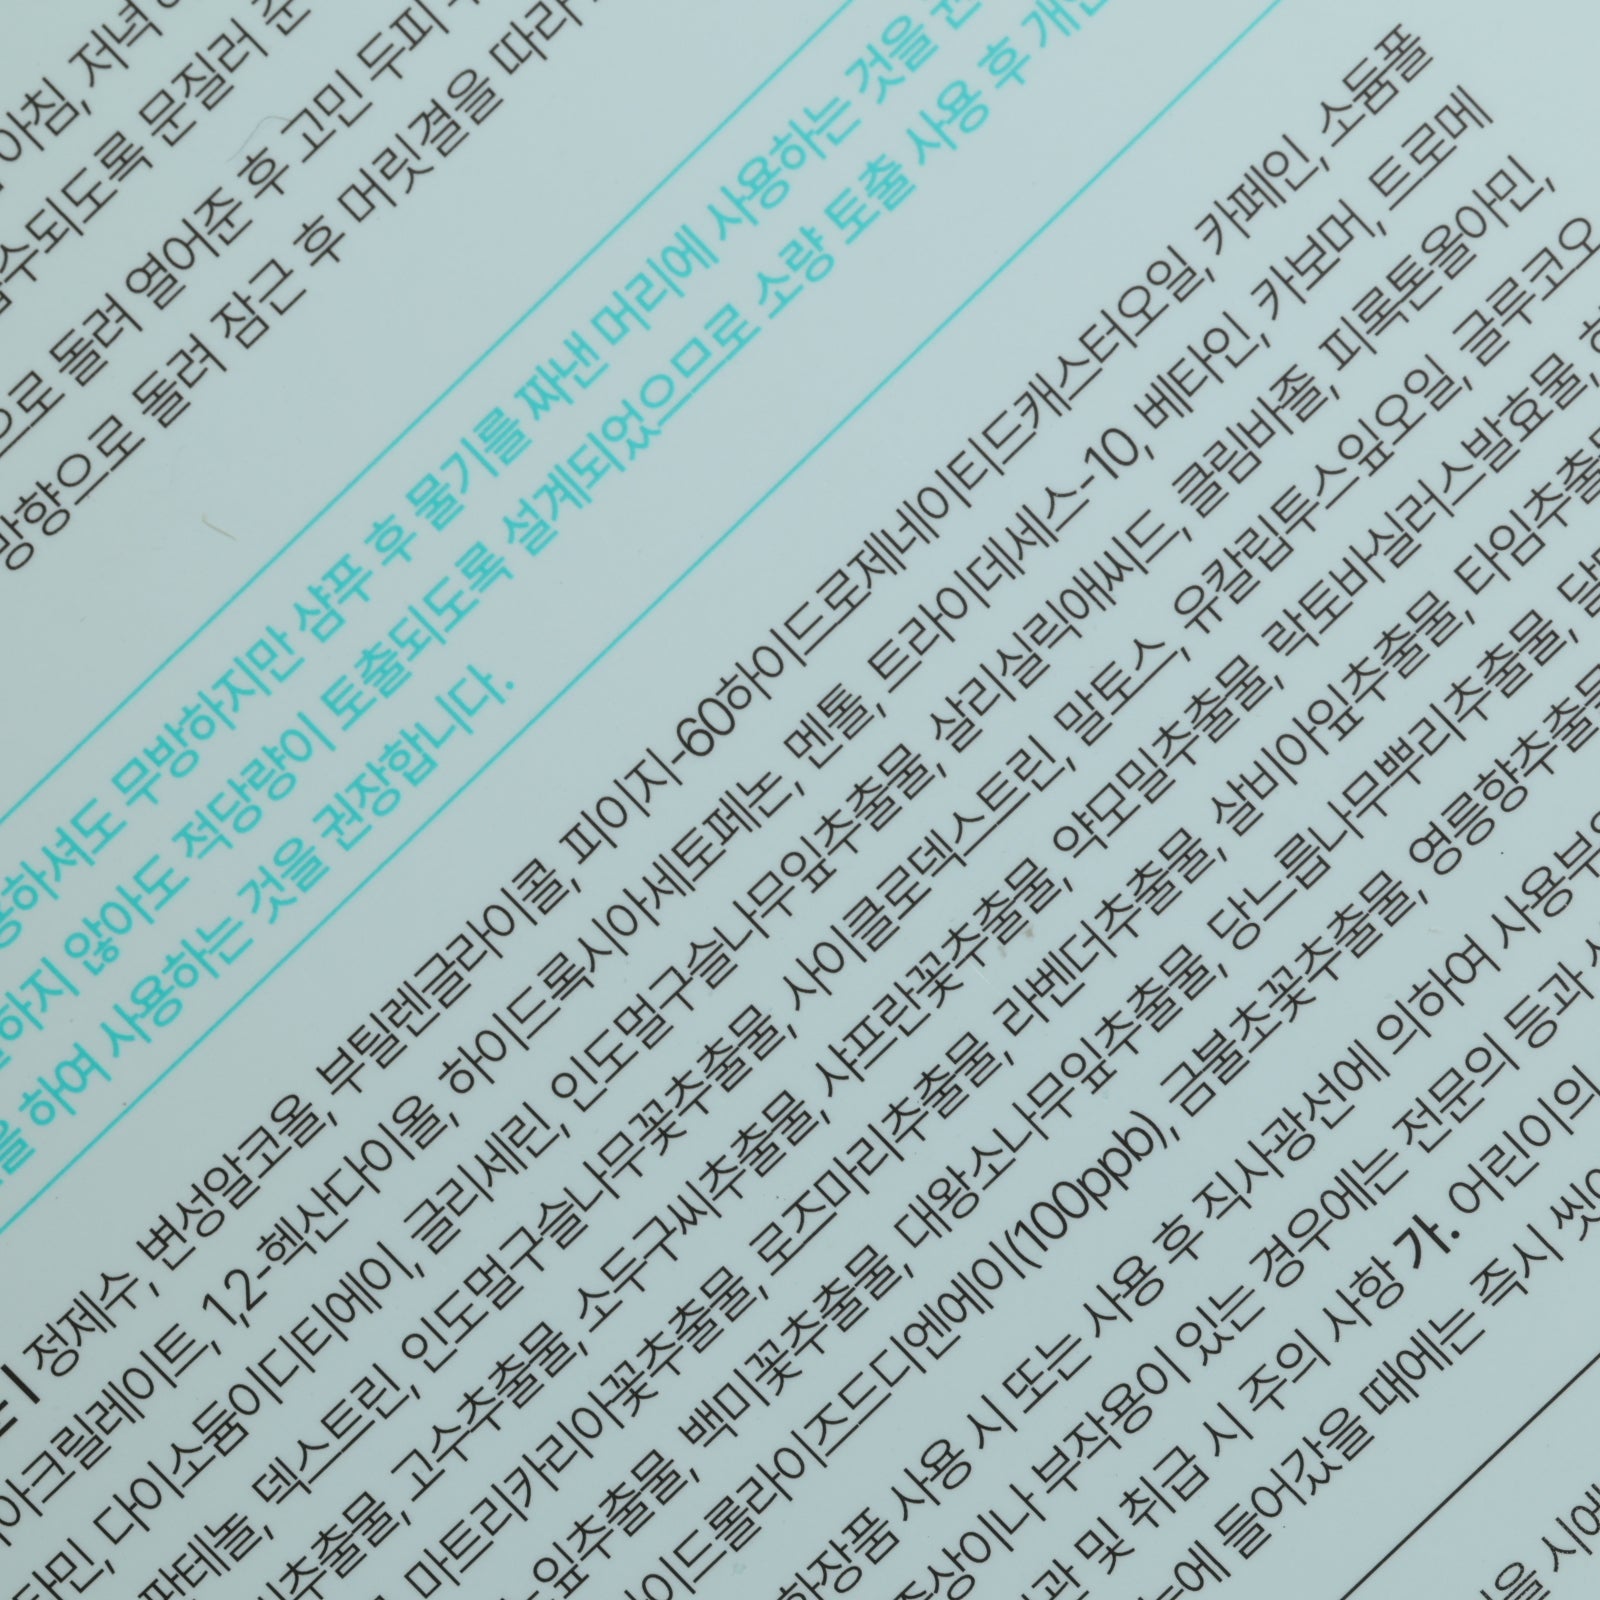 아침, 저녁
수되도록 문질러 준
으로 돌려 열어준 후 고민 두피
방향으로 돌려 잠근 후 머릿결을 따라
용하셔도 무방하지만 샴푸 후 물기를 짜낸 머리에 사용하는 것을 권
하지 않아도 적당량이 토출되도록 설계되었으므로 소량 토출 사용 후 개인
을 하여 사용하는 것을 권장합니다.
| 정제수, 변성알코올, 부틸렌글라이콜, 피이지-60하이드로제네이티드캐스터오일, 카페인, 소듐폴
아크릴레이트, 1,2-헥산다이올, 하이드록시아세토페논, 멘톨, 트라이데세스-10, 베타인, 카보머, 트로메
타민, 다이소듐이디티에이, 글리세린, 인도멀구슬나무잎추출물, 살리실릭애씨드, 클림바졸, 피록톤올아민,
판테놀, 덱스트린, 인도멀구슬나무꽃추출물, 사이클로덱스트린, 말토스, 유칼립투스잎오일, 글루코오
추출물, 고수추출물, 소두구씨추출물, 샤프란꽃추출물, 약모밀추출물, 락토바실러스발효물,
마트리카리아꽃추출물, 로즈마리추출물, 라벤더추출물, 살비아잎추출물, 타임추출
잎추출물, 백미꽃추출물, 대왕소나무잎추출물, 당느릅나무뿌리추출물,
이드롤라이즈드디엔에이(100ppb), 금불초꽃추출물, 영릉향추출물
화장품 사용 시 또는 사용 후 직사광선에 의하여 사용부위
증상이나 부작용이 있는 경우에는 전문의 등과
및 취급 시 주의 사항 가. 어린이의
눈에 들어갔을 때에는 즉시 씻
을 시에